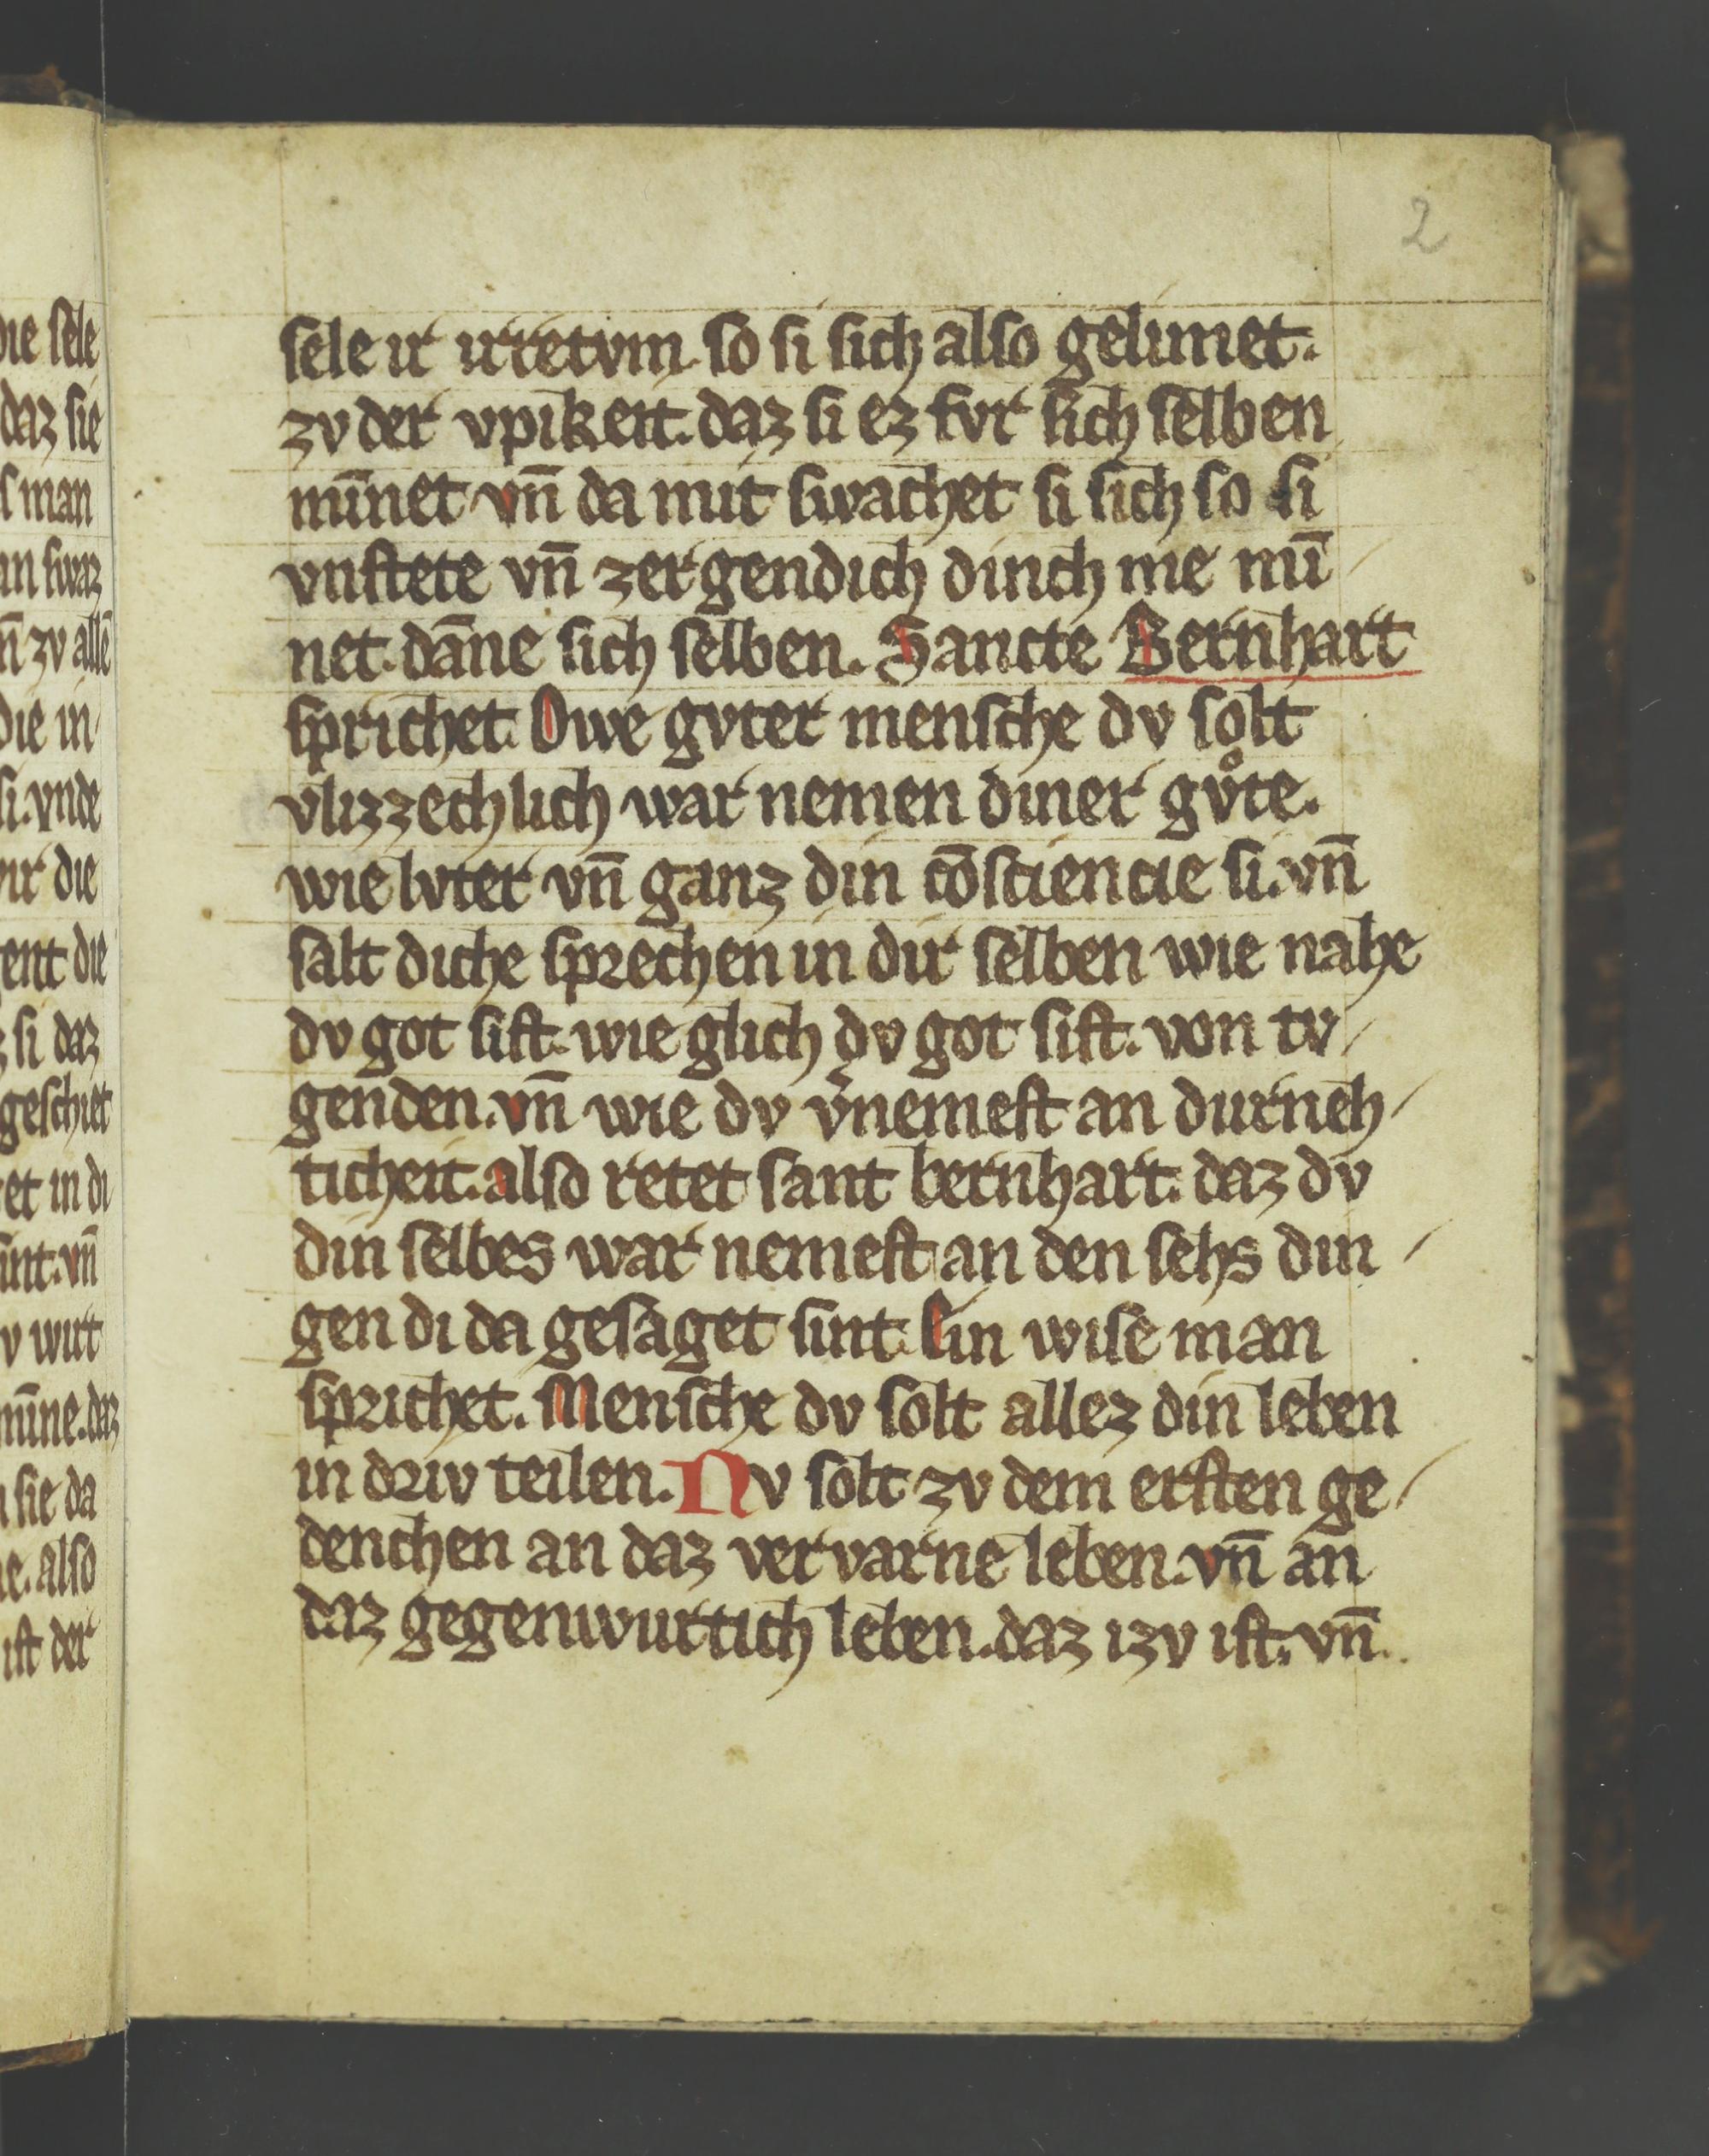 2
sele ir irretvm. so si sich also gelimet.
zv der vpikeit. daz si ez fvr sich selben
mīnet vn̄ da mit swachet si sich so si
vnstete vn̄ zergendich dinch me mī
net. dāne sich selben. Sancte Bernhart
sprichet. Owe gvter mensche dv solt
vlizzechlich war nemen diner gvͦte.
wie lvter vn̄ ganz din cōsciencie si. vn̄
salt diche sprechen in dir selben wie nahe
dv got sist. wie glich dv got sist. von tv
genden. vn̄ wie dv v̓nemest an durneh
ticheit. also retet sant bernhart. daz dv
din selbes war nemest an den sehs din
gen di da gesaget sint. Ein wise man
sprichet. Mensche dv solt allez din leben
in driv teilen. Nv solt zv dem ersten ge
denchen an daz vervarne leben. vn̄ an
daz gegenwurtich leben. daz izv ist. vn̄